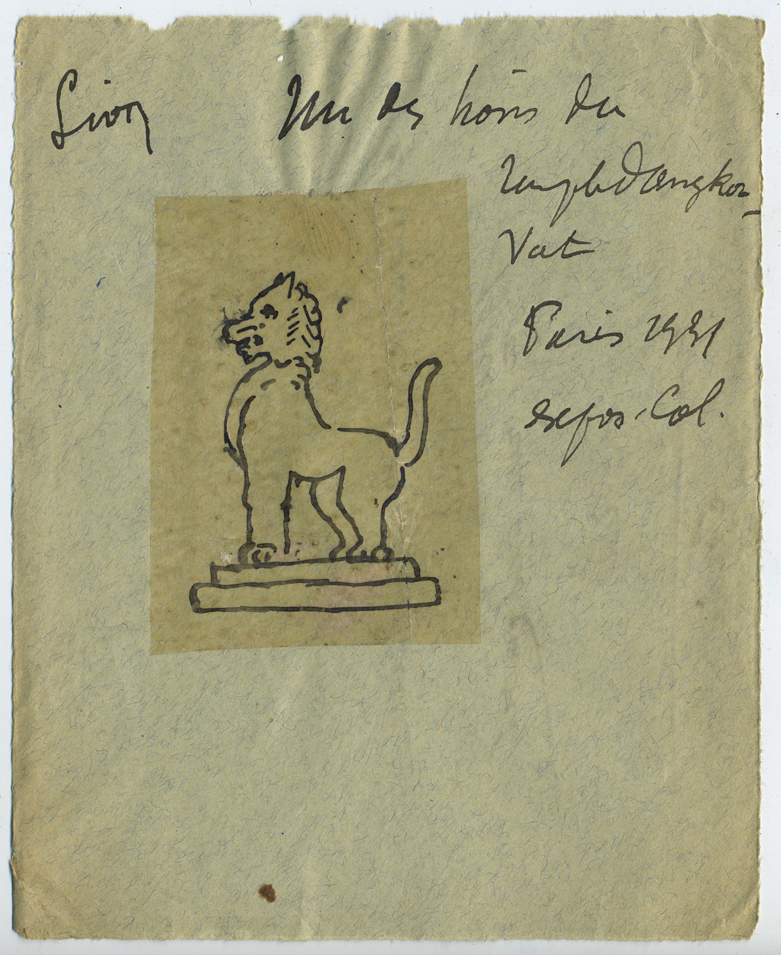 Lion
Un des lions du
temple d'angkor-
Vat
Paris 1931
expos. Col.